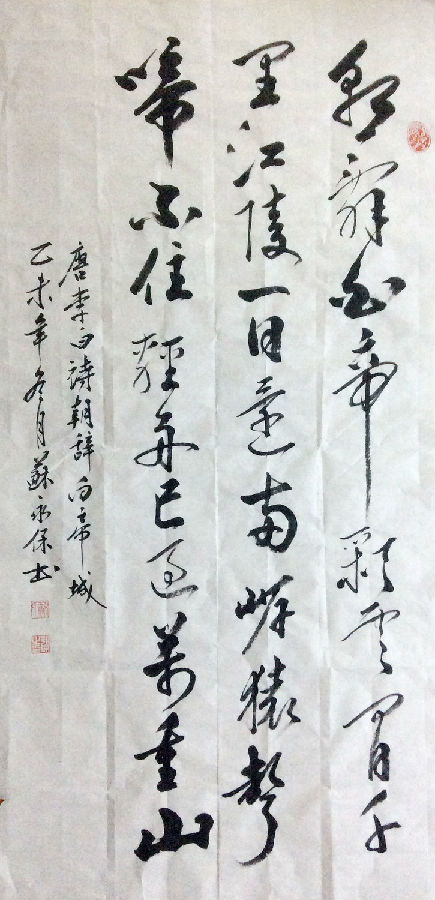 朝辭白帝彩雲間千
里江陵一日還兩岸猿聲
啼不住輕舟已過萬重山
唐李白詩朝辭白帝城
乙未年冬月蘇永保书